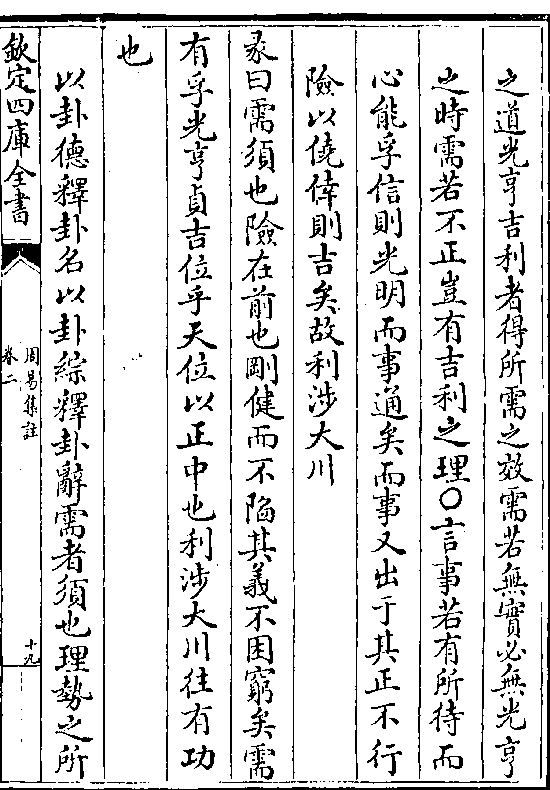 之道光亨吉利者得所需之效需若無實必無光亨
之時需若不正豈有吉利之理○言事若有所待而
心能孚信則光明而事通矣而事又出于其正不行
險以僥倖則吉矣故利涉大川
彖曰需須也險在前也剛健而不陷其義不困窮矣需
有孚光亨貞吉位乎天位以正中也利涉大川往有功
也
以卦德釋卦名以卦綜釋卦辭需者須也理勢之所
欽定四庫全書
周易集註
卷二
十九